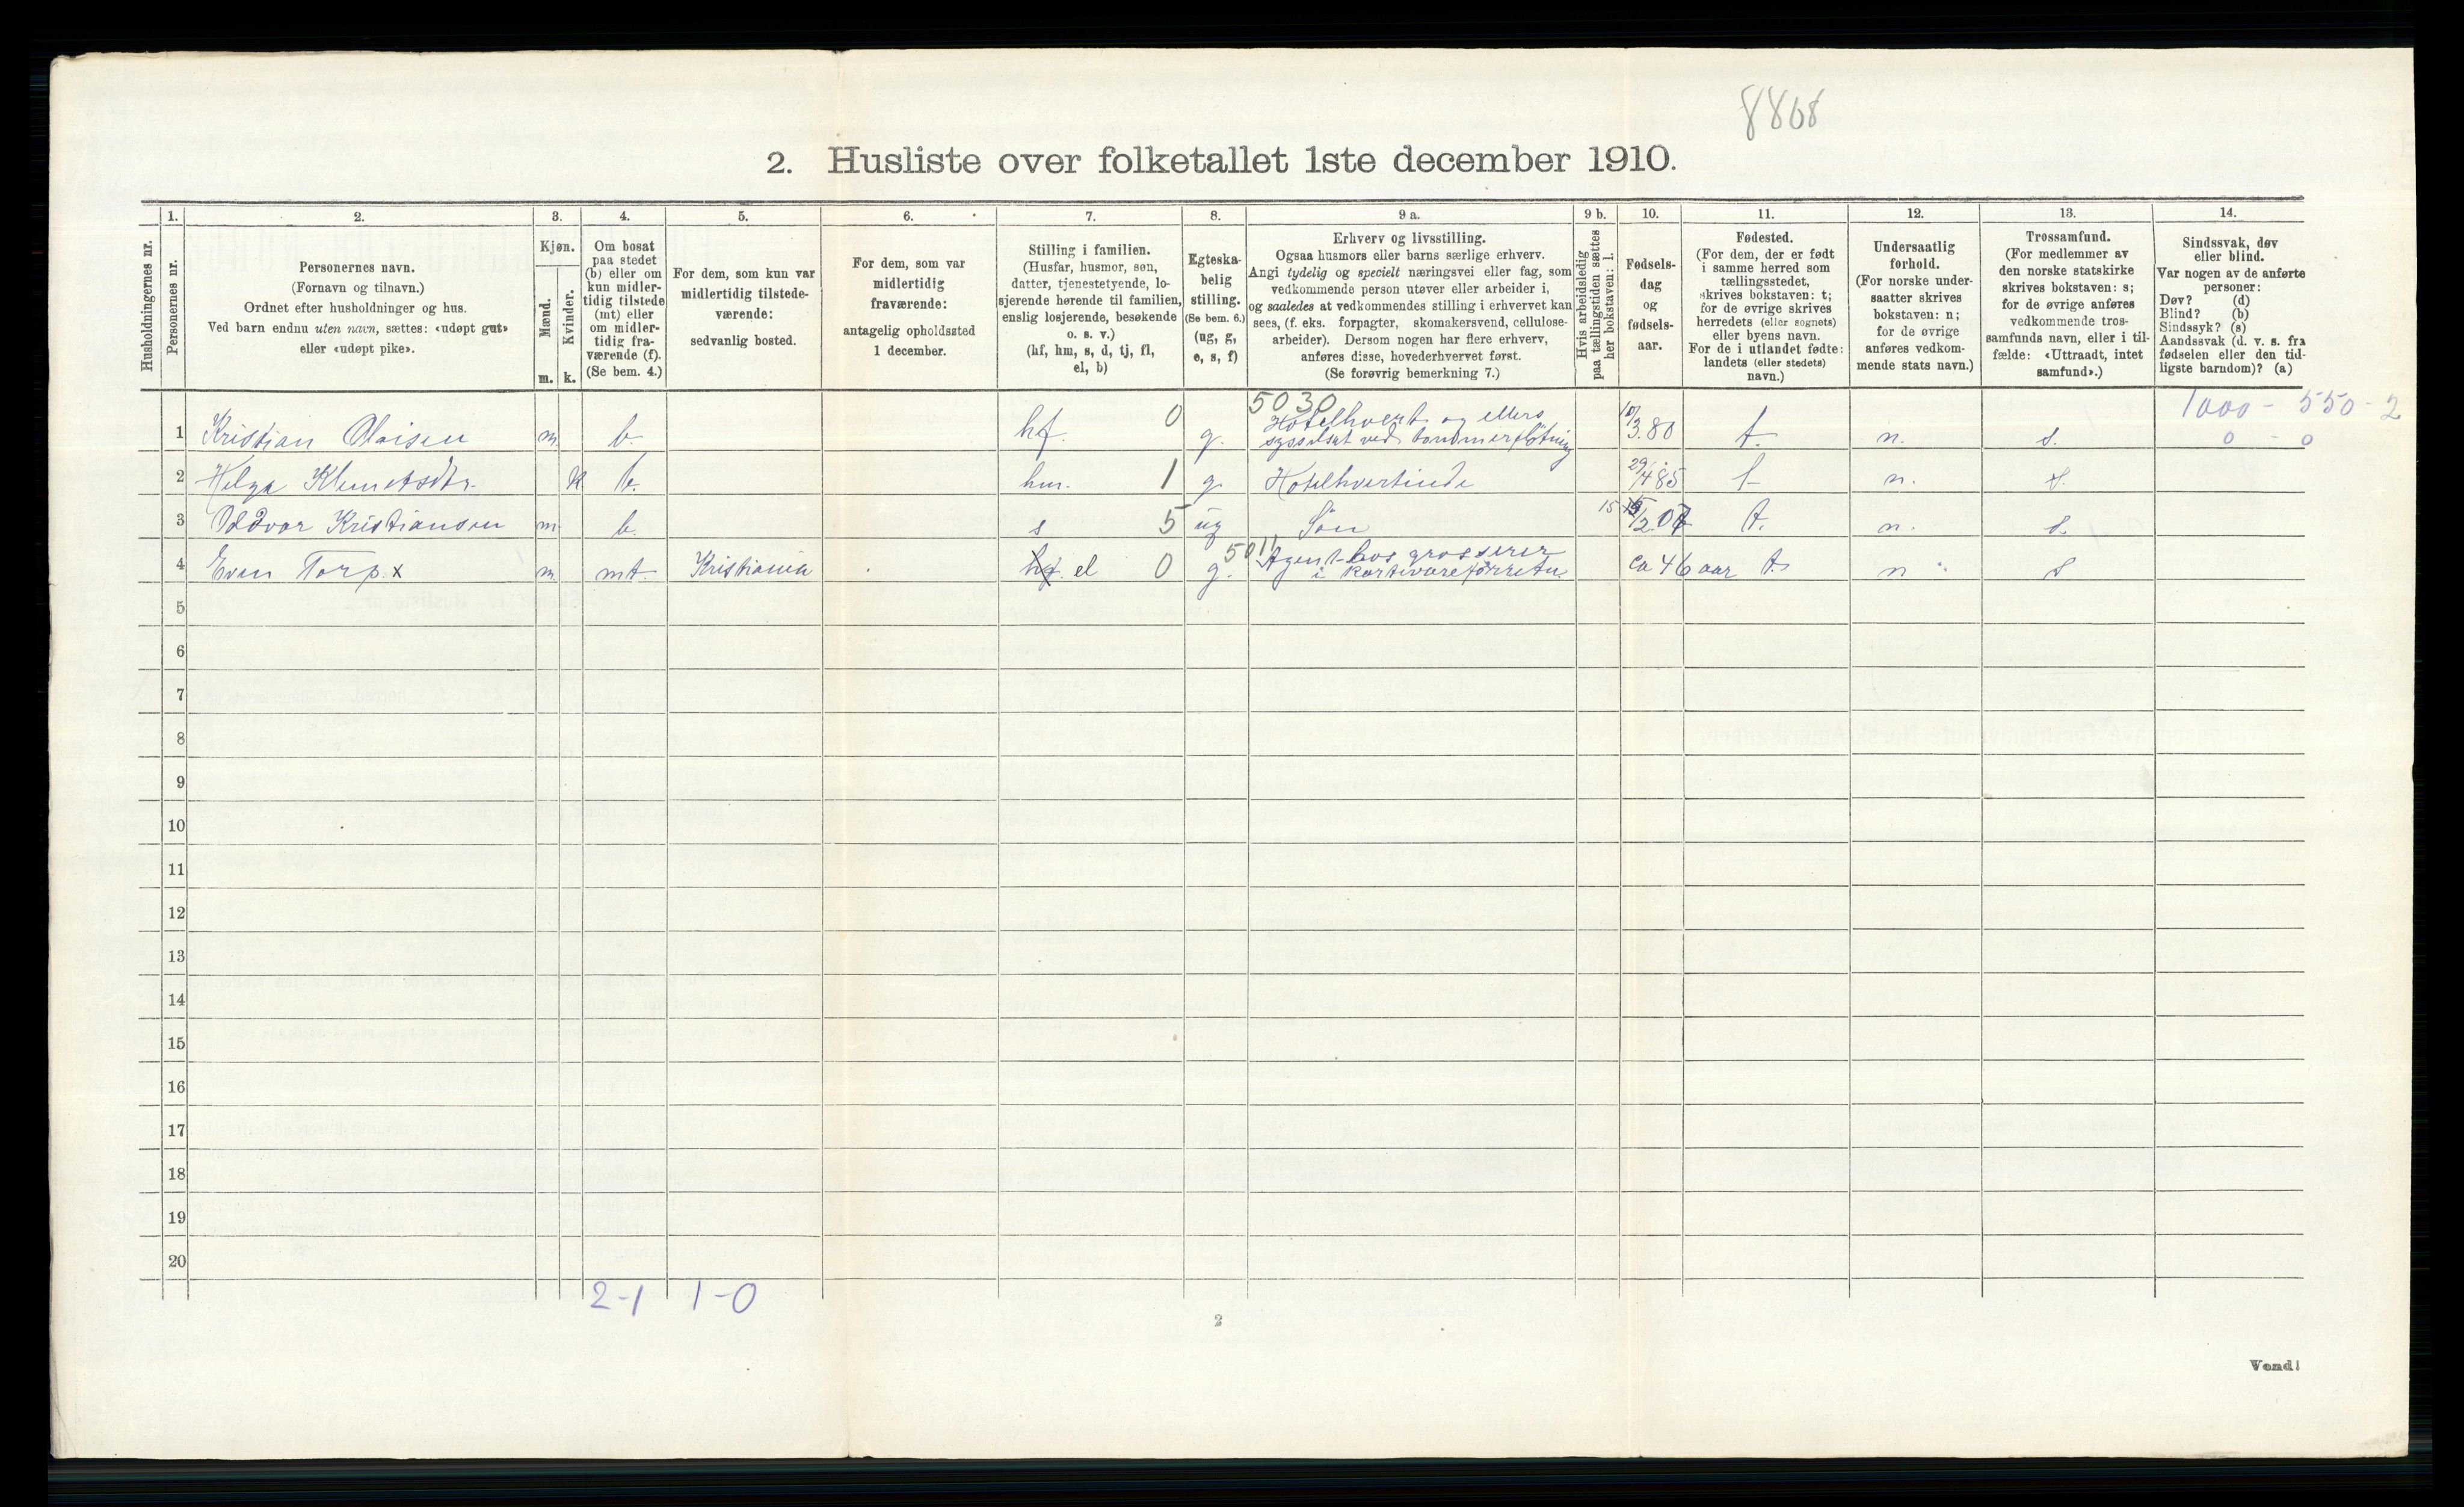 8868
2. Husliste over folketallet 1ste december 1910.
1. 2. 3. 4. 5. 6. 7. 8. 9 a. 9 b. 10. 11. 12. 13. 14.
Husholdningernes nr.
Personernes nr.
Personernes navn.
(Fornavn og tilnavn.)
Ordnet efter husholdninger og hus.
Ved barn endnu uten navn, sættes: «udøpt gut»
eller «udøpt pike».
Kjøn.
Mænd.
Kvinder.
m. k.
Om bosat
paa stedet
(b) eller om
kun midler-
tidig tilstede
(mt) eller
om midler-
tidig fra-
værende (f).
(Se bem. 4.)
For dem, som kun var
midlertidig tilstede-
værende:
sedvanlig bosted.
For dem, som var
midlertidig
fraværende:
antagelig opholdssted
1 december.
Stilling i familien.
(Husfar, husmor, søn,
datter, tjenestetyende, lo-
sjerende hørende til familien,
enslig losjerende, besøkende
o. s. v.)
(hf, hm, s, d, tj, fl,
el, b)
Egteska-
belig
stilling.
(Se bem. 6.)
(ug, g,
e, s, f)
Erhverv og livsstilling.
Ogsaa husmors eller barns særlige erhverv.
Angi tydelig og specielt næringsvei eller fag, som
vedkommende person utøver eller arbeider i,
og saaledes at vedkommendes stilling i erhvervet kan
sees, (f. eks. forpagter, skomakersvend, cellulose-
arbeider). Dersom nogen har flere erhverv,
anføres disse, hovederhvervet først.
(Se forøvrig bemerkning 7.)
Hvis arbeidsledig
paa tællingstiden sættes
her bokstaven: l.
Fødsels-
dag
og
fødsels-
aar.
Fødested.
(For dem, der er født
i samme herred som
tællingsstedet,
skrives bokstaven: t;
for de øvrige skrives
herredets (eller sognets)
eller byens navn.
For de i utlandet fødte:
landets (eller stedets)
navn.)
Undersaatlig
forhold.
(For norske under-
saatter skrives
bokstaven: n;
for de øvrige
anføres vedkom-
mende stats navn.)
Trossamfund.
(For medlemmer av
den norske statskirke
skrives bokstaven: s;
for de øvrige anføres
vedkommende tros-
samfunds navn, eller i til-
fælde: «Uttraadt, intet
samfund».)
Sindssvak, døv
eller blind.
Var nogen av de anførte
personer:
Døv? (d)
Blind? (b)
Sindssyk? (s)
Aandssvak (d. v. s. fra
fødselen eller den tid-
ligste barndom)? (a)
5030 1000 - 550 - 2
1 Kristian Olaisen m. b. hf. 0 g. Hotelhvert og ellers
sysselsat ved tømmerfløtning 10/3.80 t. n. s. 0 - 0
2 Helga Klemetsdtr. k b. hm. 1 g. Hotelhvertinde 29/4 85 t n. s.
3 Oddvar Kristiansen m. b. s 5 ug Søn 15 /2.07 t. n. s.
4 Even Torp. x m mt. Kristiania hf. el 0 g. 5011 Agent hos grosserer
i kortevareforretn. ca 46 aar t. n s
5
6
7
8
9
10
11
12
13
14
15
16
17
18
19
20
2-1 1-0
2
Vend!